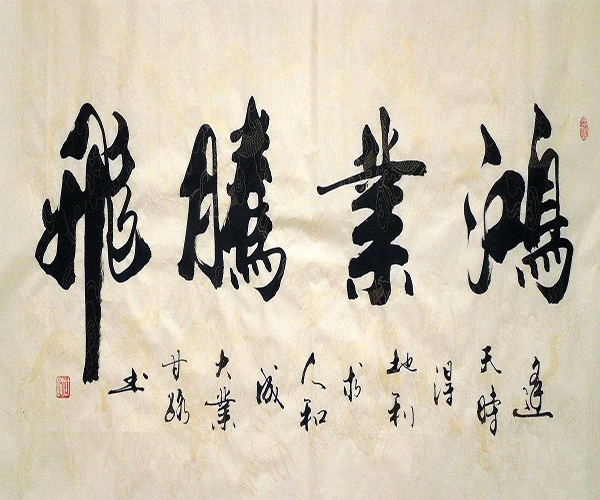 鴻業騰飛
逢
天時
得
地利
求
人和
成
大業
甘
書